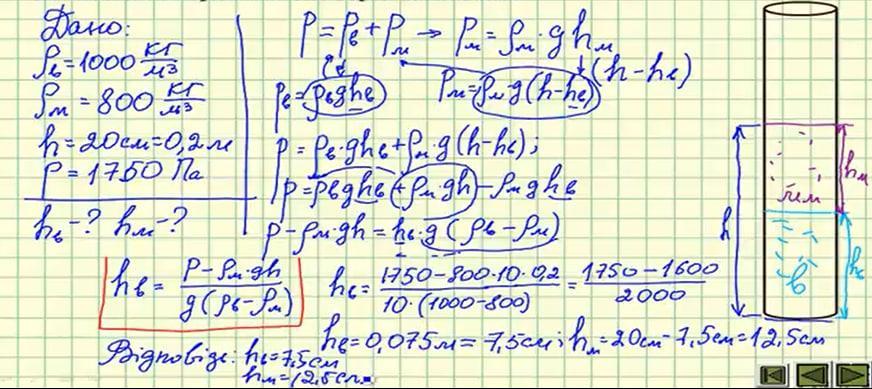 Дано:
ρв=1000 кг/м³
ρм=800 кг/м³
h=20см=0,2м
P=1750 Па
hв-? hм-?
P=Pв+Pм → Pм=ρм·g hм
(h-hв)
Pв=ρвghв Pм=ρмg(h-hв)
P=ρв·ghв+ρм·g(h-hв);
P=ρвghв+ρм·gh-ρмghв
P-ρм·gh=hв·g(ρв-ρм)
hв=(P-ρм·gh)/(g(ρв-ρм)) hв=(1750-800·10·0,2)/(10·(1000-800))=(1750-1600)/2000
hв=0,075м=7,5см; hм=20см-7,5см=12,5см
Відповідь: hв=7,5см
hм=12,5см.
h
hм
hв
в